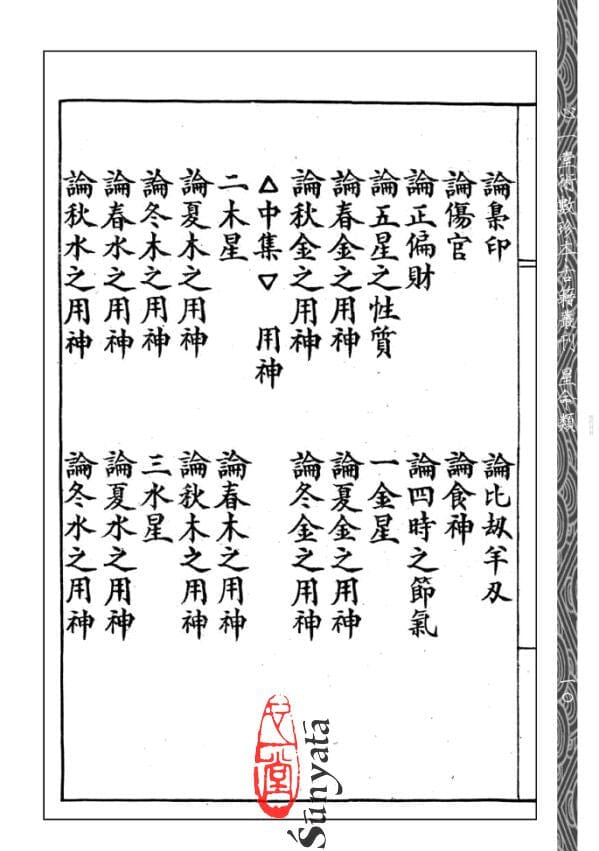 論梟印
論比刼羊刄
論傷官
論食神
論正偏財
論四時之節氣
論五星之性質
一金星
論春金之用神
論夏金之用神
論秋金之用神
論冬金之用神
△中集▽ 用神
二木星
論春木之用神
論夏木之用神
論秋木之用神
論冬木之用神
三水星
論春水之用神
論夏水之用神
論秋水之用神
論冬水之用神
心一堂術數珍本古籍叢刊 星命類
一〇
心一堂
Śūnyatā